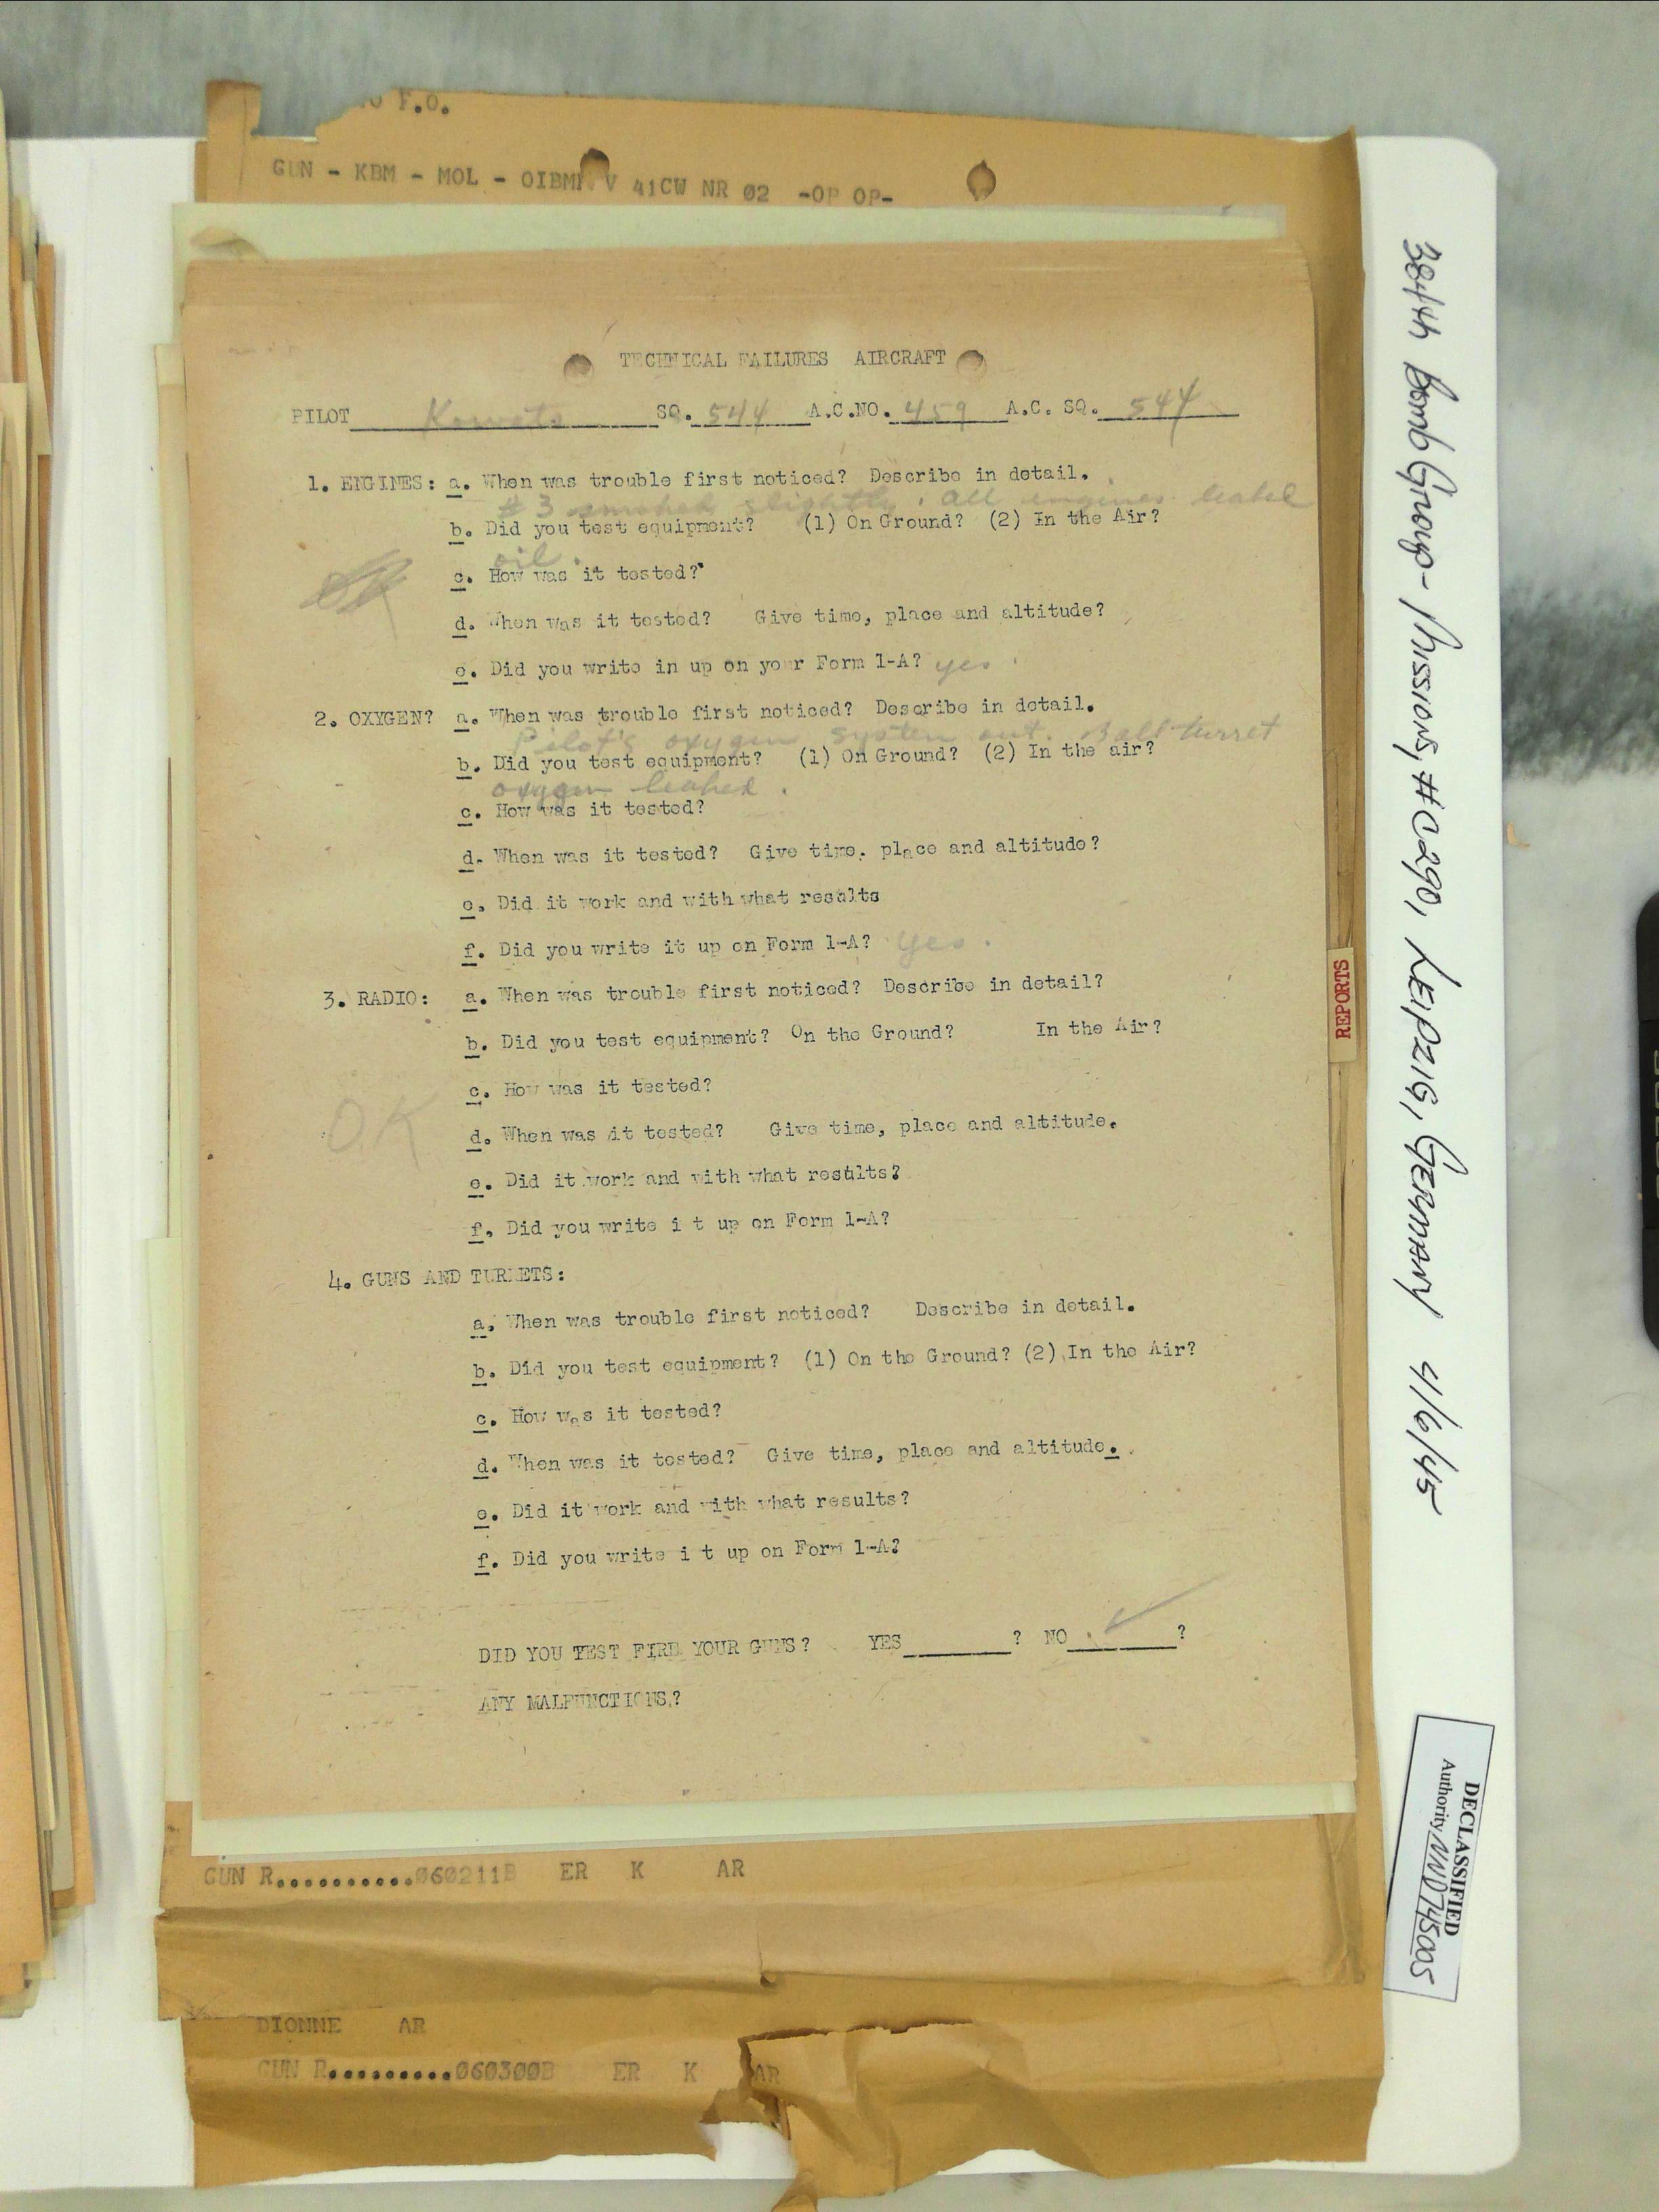 F.O.
GUN - KBM - MOL - OIBMN V 41CW NR 02 -OP OP-
TECHNICAL FAILURES AIRCRAFT
PILOT SQ. 544 A.C.NO. 459 A.C. SQ. 544
1. ENGINES: a. When was trouble first noticed? Describe in detail.
#3 smoked slightly. all engines leaked
b. Did you test equipment? (1) On Ground? (2) In the Air?
oil.
c. How was it tested?
d. When was it tested? Give time, place and altitude?
e. Did you write in up on your Form 1-A? yes.
2. OXYGEN? a. When was trouble first noticed? Describe in detail.
Pilot's oxygen system out. Ball turret
b. Did you test equipment? (1) On Ground? (2) In the air?
oxygen leaked.
c. How was it tested?
d. When was it tested? Give time. place and altitude?
e. Did it work and with what results
f. Did you write it up on Form 1-A? yes.
3. RADIO: a. When was trouble first noticed? Describe in detail?
b. Did you test equipment? On the Ground? In the Air?
c. How was it tested?
OK
d. When was it tested? Give time, place and altitude.
e. Did it work and with what results?
f. Did you write i t up on Form 1-A?
4. GUNS AND TURRETS:
a. When was trouble first noticed? Describe in detail.
b. Did you test equipment? (1) On the Ground? (2) In the Air?
c. How was it tested?
d. When was it tested? Give time, place and altitude.
e. Did it work and with what results?
f. Did you write i t up on Form 1-A?
DID YOU TEST FIRE YOUR GUNS? YES ? NO ✓ ?
ANY MALFUNCTIONS?
GUN R..........060211B ER K AR
DIONNE AR
GUN R.........060300B ER K AR
REPORTS
384th Bomb Group - Missions, #C290, LEIPZIG, GERMANY 4/6/45
DECLASSIFIED
Authority NND745005